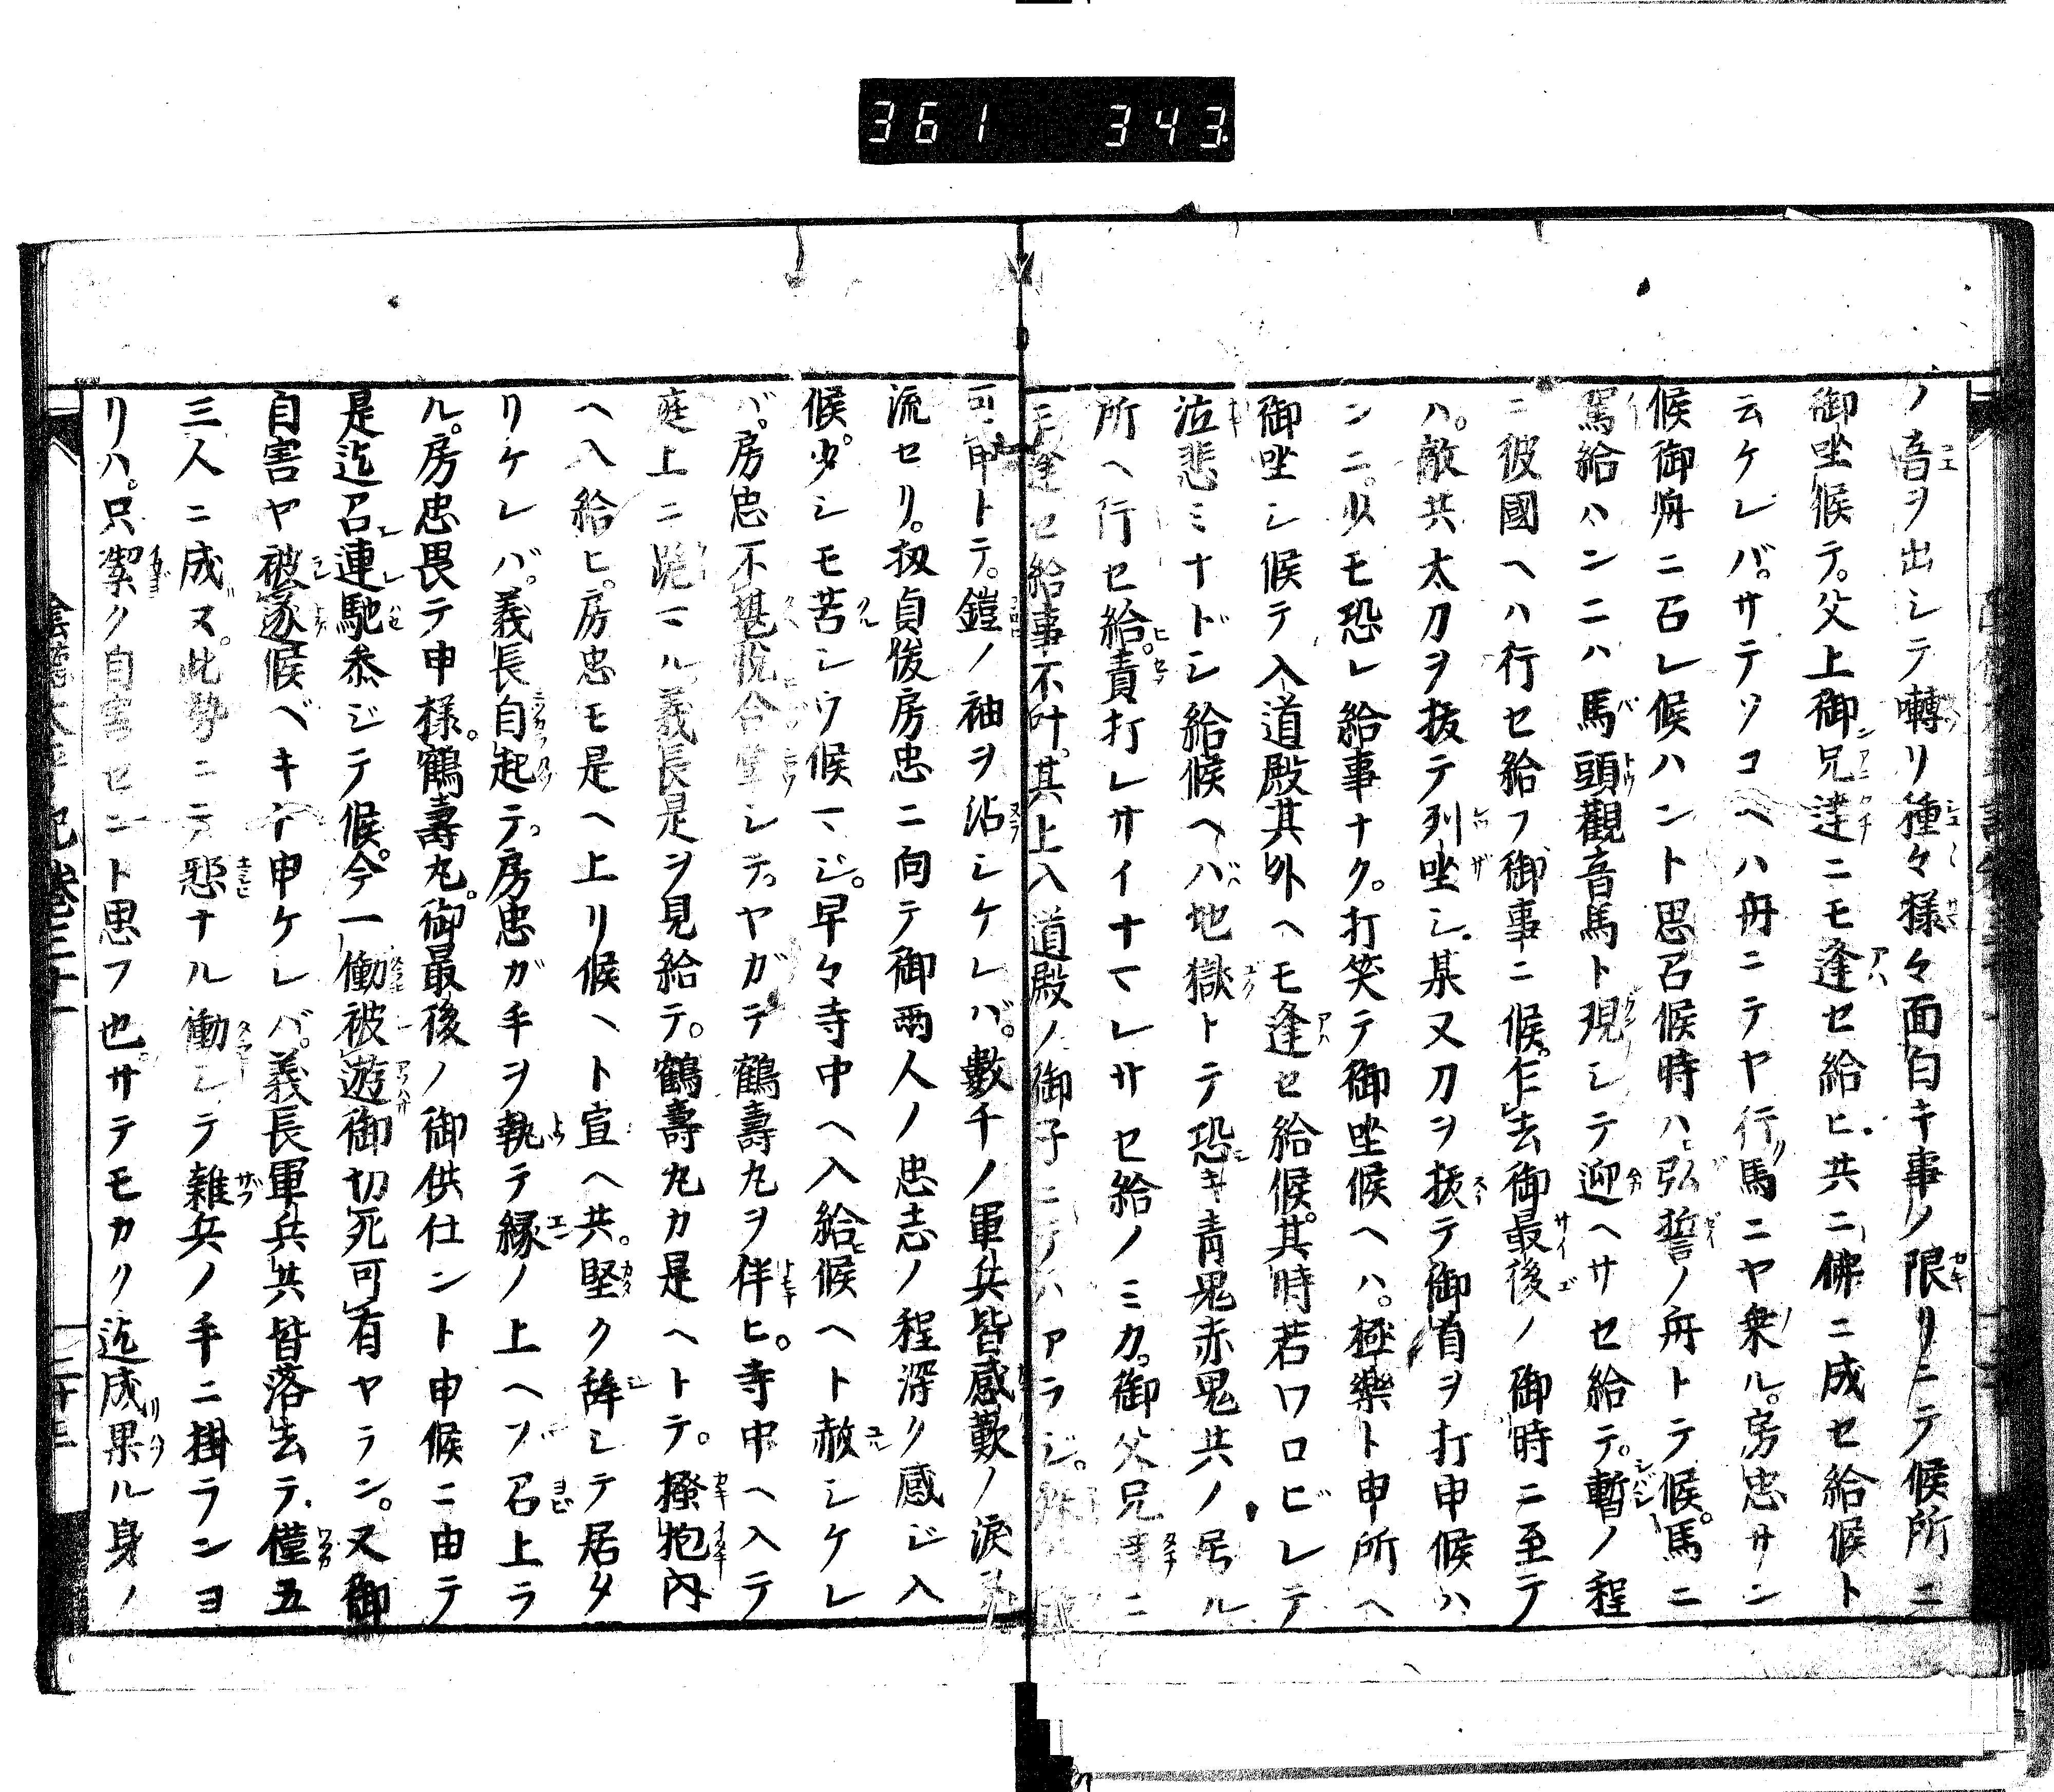 361 343
ノ音ヲ出シテ囀リ種々様々面白キ事ノ限リニテ候所ニ
御坐候テ。父上御兄達ニモ逢セ給ヒ。共ニ佛ニ成セ給候ト
云ケレバ。サテソコヘハ舟ニテヤ行馬ニヤ乗ル。房忠サン
候御舟ニ召レ候ハント思召候時ハ弘誓ノ舟トテ候。馬ニ
駕給ハンニハ馬頭觀音馬ト現シテ迎ヘサセ給テ。暫ノ程
ニ彼國ヘハ行セ給フ御事ニ候。乍去御最後ノ御時ニ至テ
ハ。敵共太刀ヲ抜テ列坐シ。某又刀ヲ抜テ御首ヲ打申候ハ
ンニ。少モ恐レ給事ナク。打笑テ御坐候ヘハ。極樂ト申所ヘ
御坐シ候テ入道殿其外ヘモ逢セ給候。其時若ワロビレテ
泣悲ミナドシ給候ヘバ地獄トテ恐キ青鬼赤鬼共ノ居ル
所ヘ行セ給。責打レサイナマレサセ給ノミカ。御父兄達ニ
モ逢セ給事不叶。其上入道殿ノ御子ニテハアラジ。
可申トテ。鎧ノ袖ヲ沾シケレバ。數千ノ軍兵皆感歎ノ涙ヲ
流セリ。扨貞俊房忠ニ向テ御兩人ノ忠志ノ程深ク感ジ入
候。少シモ苦シウ候マジ。早々寺中ヘ入給候ヘト赦シケレ
バ。房忠不堪悦合掌シテ。ヤガテ鶴壽丸ヲ伴ヒ。寺中ヘ入テ
庭上ニ跪マル。義長是ヲ見給テ。鶴壽丸カ是ヘトテ。掻抱内
ヘ入給ヒ。房忠モ是ヘ上リ候ヘト宣ヘ共。堅ク辞シテ居タ
リケレバ。義長自起テ。房忠ガ手ヲ執テ縁ノ上ヘゾ召上ラ
ル。房忠畏テ申様。鶴壽丸。御最後ノ御供仕ント申候ニ由テ
是迄召連馳参ジテ候。今一働被遊御切死可有ヤラン。又御
自害ヤ被遂候ベキト申ケレバ。義長軍兵共皆落去テ。僅五
三人ニ成ヌ。此勢ニテ憖ナル働シテ雜兵ノ手ニ掛ランヨ
リハ。只潔ク自害セント思フ也。サテモカク迄成果ル身ノ
陰德太平記卷三十一